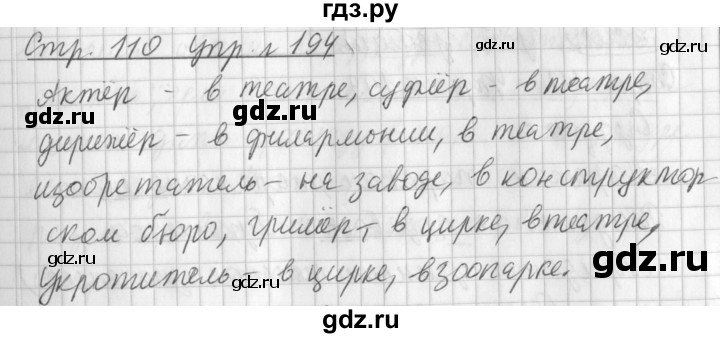 гдз.ру
Стр. 110 упр. 194
gdz.ru gdz.ru
Актёр - в театре, суфлёр - в театре,
gdz.ru gdz.ru
дирижёр - в филармонии, в театре,
изобретатель - на заводе, в конструктор-
ском бюро, гримёр - в цирке, в театре,
gdz.ru gdz.ru
Укротитель - в цирке, в зоопарке.
gdz.ru